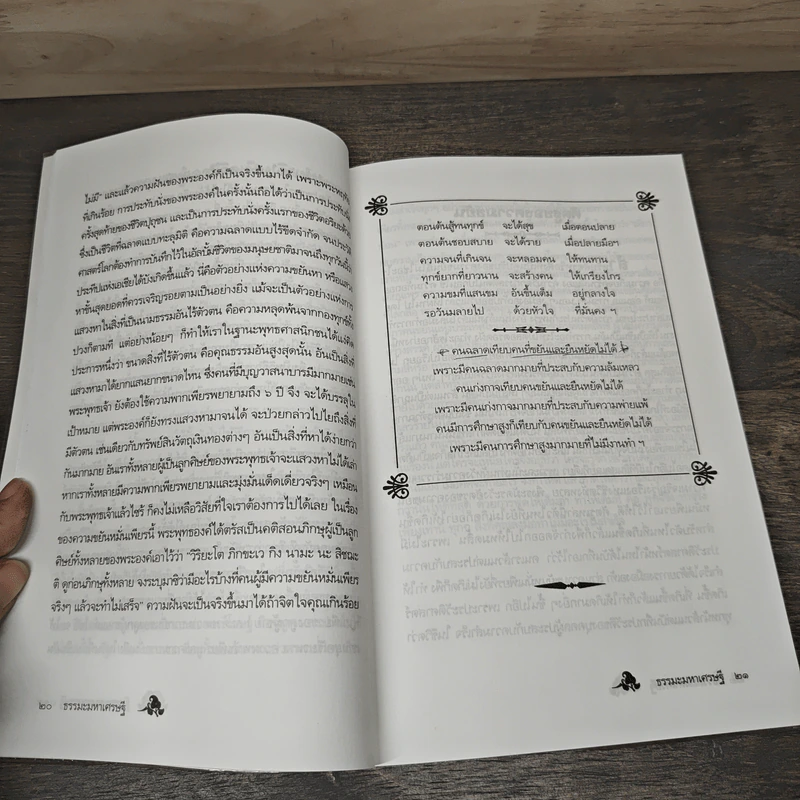 ไม่มี" และแล้วความฝันของพระองค์ก็เป็นจริงขึ้นมาได้ เพราะพระหฤทัย
ที่เกินร้อย การประทับนั่งของพระองค์ในครั้งนั้นถือได้ว่าเป็นการประทับนั่ง
ครั้งสุดท้ายของชีวิตปุถุชน และเป็นการประทับนั่งครั้งแรกของชีวิตอริยะ
ซึ่งเป็นชีวิตที่ฉลาดแบบทะลุมิติ คือความฉลาดแบบไร้ขีดจำกัด จน
ศาสตร์โลกต้องทำการบันทึกไว้ในอัลบั้มชีวิตของมนุษยชาติมาจนถึงทุกวันนี้
ประทีปแห่งเอเชียได้บังเกิดขึ้นแล้ว นี่คือตัวอย่างแห่งความขยันหา หรือแสวง
หาขั้นสุดยอดที่ควรเจริญรอยตามเป็นอย่างยิ่ง แม้จะเป็นตัวอย่างแห่งการ
แสวงหาในสิ่งที่เป็นนามธรรมอันไร้ตัวตน คือความหลุดพ้นจากกองทุกข์ทั้ง
ปวงก็ตามที แต่อย่างน้อยๆ ก็ทำให้เราในฐานะพุทธศาสนิกชนได้แง่คิด
ประการหนึ่งว่า ขนาดสิ่งที่ไร้ตัวตน คือคุณธรรมอันสูงสุดนั้น อันเป็นสิ่งที่
แสวงหามาได้ยากแสนยากขนาดไหน ซึ่งคนที่มีบุญวาสนาบารมีมากมายเช่น
พระพุทธเจ้า ยังต้องใช้ความพากเพียรพยายามถึง ๖ ปี จึง จะได้บรรลุใน
เป้าหมาย แต่พระองค์ก็ยังทรงแสวงหามาจนได้ จะป่วยกล่าวไปไยถึงสิ่งที่
มีตัวตน เช่นเดียวกับทรัพย์สินวัตถุเงินทองต่างๆ อันเป็นสิ่งที่หาได้ง่ายกว่า
กันมากมาย อันเราทั้งหลายผู้เป็นลูกศิษย์ของพระพุทธเจ้าจะแสวงหาไม่ได้เล่า
หากเราทั้งหลายมีความพากเพียรพยายามและมุ่งมั่นเด็ดเดี่ยวจริงๆ เหมือน
กับพระพุทธเจ้าแล้วไซร้ ก็คงไม่เหลือวิสัยที่ใจเราต้องการไปได้เลย ในเรื่อง
ของความขยันหมั่นเพียรนี้ พระพุทธองค์ได้ตรัสเป็นคติสอนภิกษุผู้เป็นลูก
ศิษย์ทั้งหลายของพระองค์เอาไว้ว่า "วิริยะโต ภิกขะเว กิง นามะ นะ สิชฌะ
ติ ดูก่อนภิกษุทั้งหลาย จงระบุมาซิว่ามีอะไรบ้างที่คนผู้มีความขยันหมั่นเพียร
จริงๆ แล้วจะทำไม่เสร็จ" ความฝันจะเป็นจริงขึ้นมาได้ถ้าจิตใจคุณเกินร้อย
๒๐ ธรรมะมหาเศรษฐี
ตอนต้นสู้ทนทุกข์ จะได้สุข เมื่อตอนปลาย
ตอนต้นชอบสบาย จะได้ร้าย เมื่อปลายมือฯ
ความจนที่เกินจน จะหลอมคน ให้ทนทาน
ทุกข์ยากที่ยาวนาน จะสร้างคน ให้เกรียงไกร
ความขมที่แสนขม อันขื่นเต็ม อยู่กลางใจ
รอวันมลายไป ด้วยหัวใจ ที่มั่นคง ฯ
คนฉลาดเทียบคนที่ขยันและยืนหยัดไม่ได้
เพราะมีคนฉลาดมากมายที่ประสบกับความล้มเหลว
คนเก่งกาจเทียบคนขยันและยืนหยัดไม่ได้
เพราะมีคนเก่งกาจมากมายที่ประสบกับความพ่ายแพ้
คนมีการศึกษาสูงก็เทียบกับคนขยันและยืนหยัดไม่ได้
เพราะมีคนการศึกษาสูงมากมายที่ไม่มีงานทำ ฯ
ธรรมะมหาเศรษฐี ๒๑